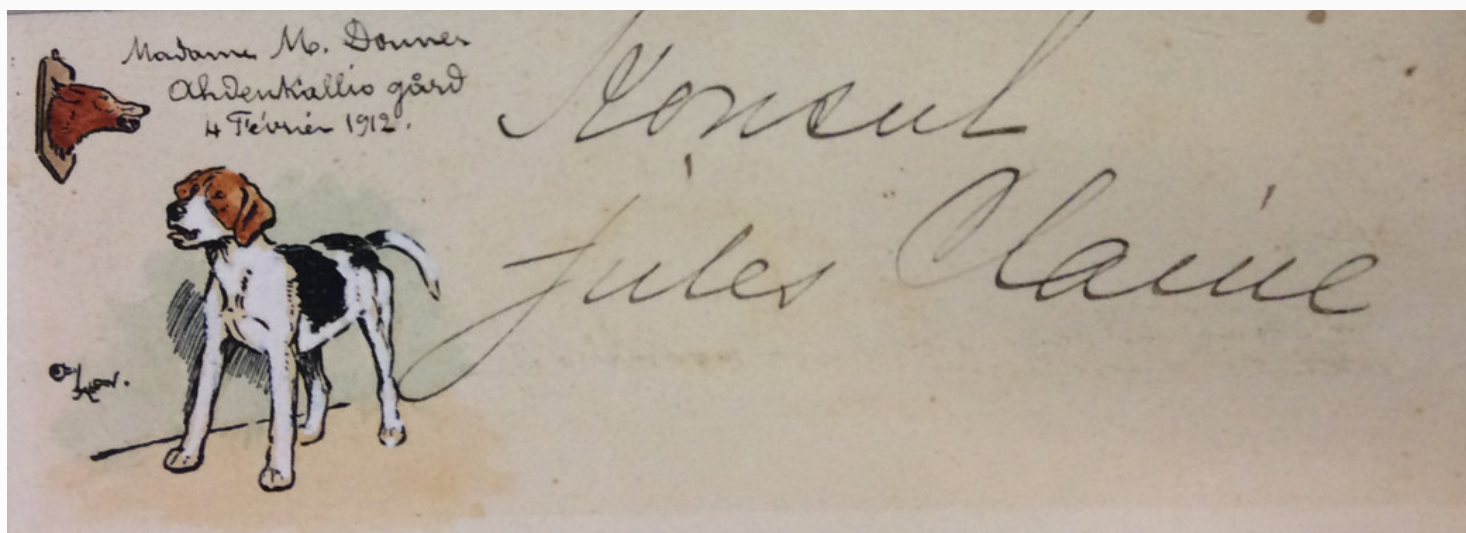 Madame M. Donner
Ahdenkallio gård
4 Février 1912.
Konsul
Jules Claine